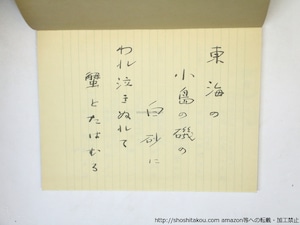 東海の
小島の磯の
白砂に
われ泣きぬれて
蟹とたはむる
http://shoshitakou.com amazon等への転載・加工禁止